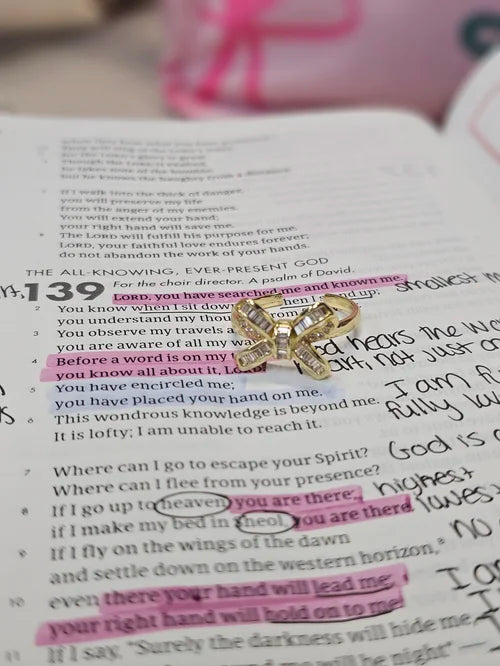 They will sing of the LORD's ways,
for the LORD's glory is great.
Though the LORD is exalted,
he takes note of the humble;
but he knows the haughty from a distance.
7 If I walk into the thick of danger,
you will preserve my life
from the anger of my enemies.
You will extend your hand;
your right hand will save me.
8 The LORD will fulfill his purpose for me.
LORD, your faithful love endures forever;
do not abandon the work of your hands.
THE ALL-KNOWING, EVER-PRESENT GOD
139 For the choir director. A psalm of David.
LORD, you have searched me and known me.
2 You know when I sit down hen I stand up;
you understand my thou from
3 You observe my travels a
you are aware of all my wa
4 Before a word is on my
you know all about it, LORD
5 You have encircled me;
you have placed your hand on me.
6 This wondrous knowledge is beyond me.
It is lofty; I am unable to reach it.
7 Where can I go to escape your Spirit?
Where can I flee from your presence?
8 If I go up to heaven, you are there;
if I make my bed in Sheol, you are there
9 If I fly on the wings of the dawn
and settle down on the western horizon,
10 even there your hand will lead me;
your right hand will hold on to me
11 If I say, "Surely the darkness will hide me
me will be night" —
smallest
hears the wo
not just
I am f
fully
God is
highest
lowest
no